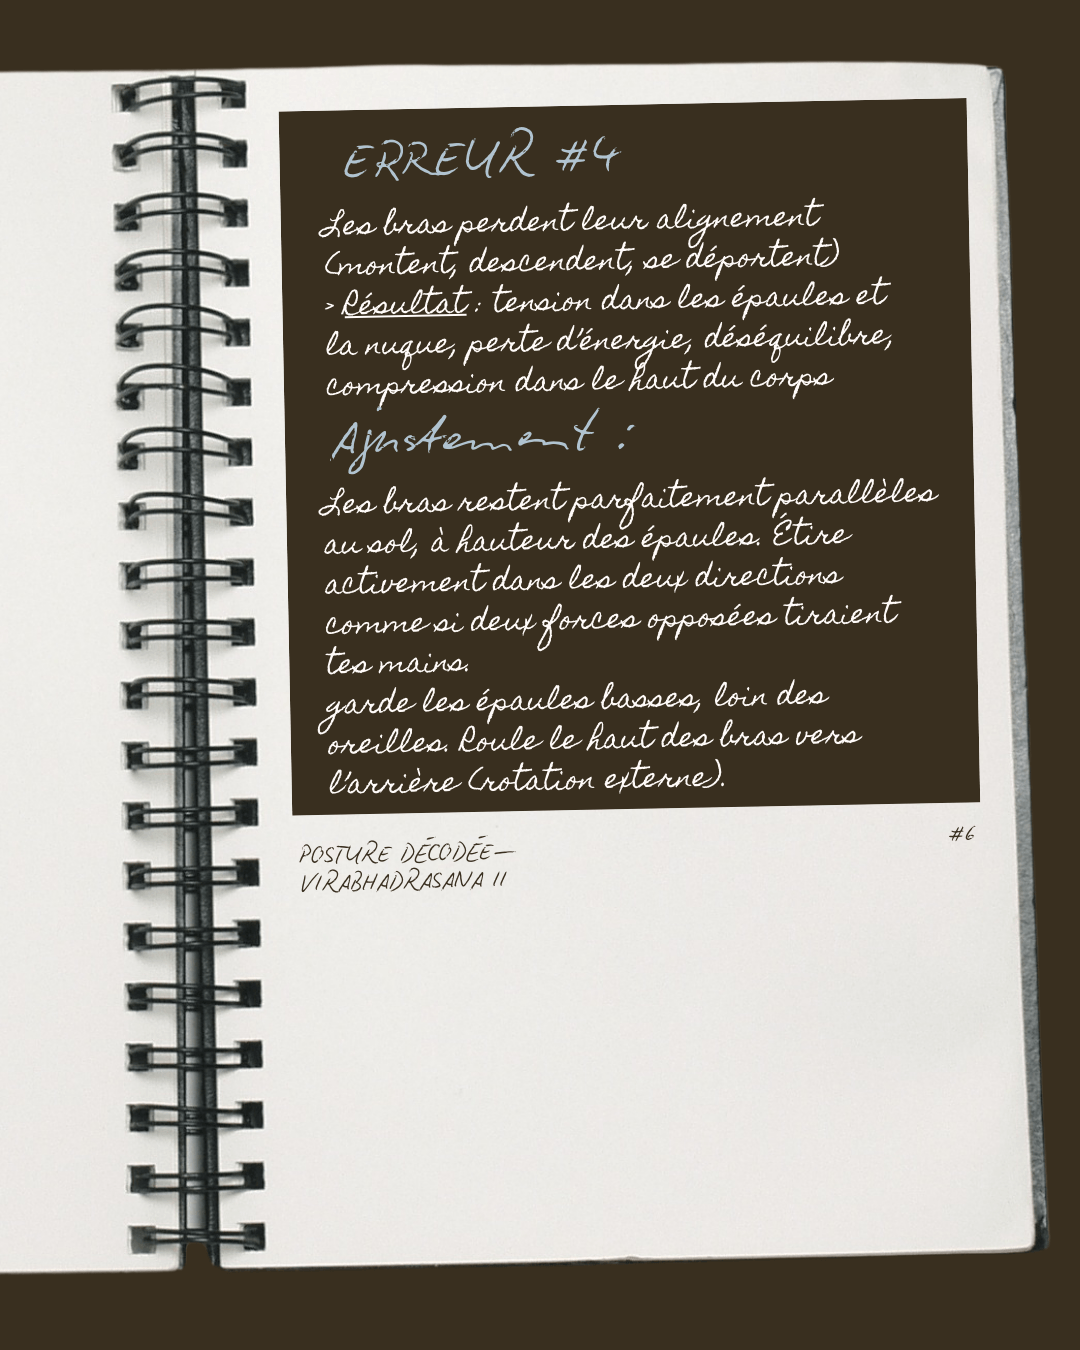 ERREUR #4
Les bras perdent leur alignement
(montent, descendent, se déportent)
> Résultat : tension dans les épaules et
la nuque, perte d'énergie, déséquilibre,
compression dans le haut du corps
Ajustement :
Les bras restent parfaitement parallèles
au sol, à hauteur des épaules. Étire
activement dans les deux directions
comme si deux forces opposées tiraient
tes mains.
garde les épaules basses, loin des
oreilles. Roule le haut des bras vers
l'arrière (rotation externe).
#6
POSTURE DÉCODÉE—
VIRABHADRASANA II